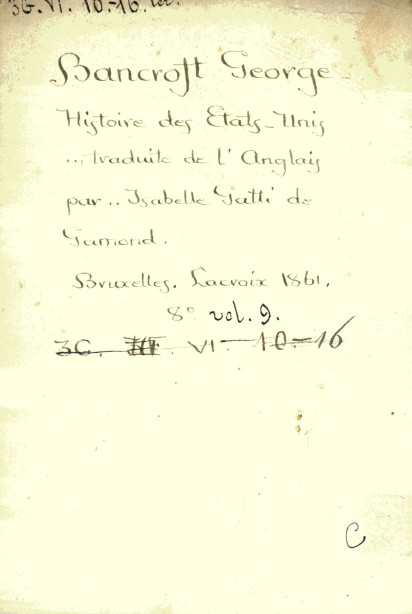 3G. VI. 10-16. ter.
Bancroft George
Histoire des Etats-Unis
... traduite de l'Anglais
par .. Isabelle Gatti de
Gamond.
Bruxelles. Lacroix 1861.
8° vol. 9.
3G. VI - 10-16
C